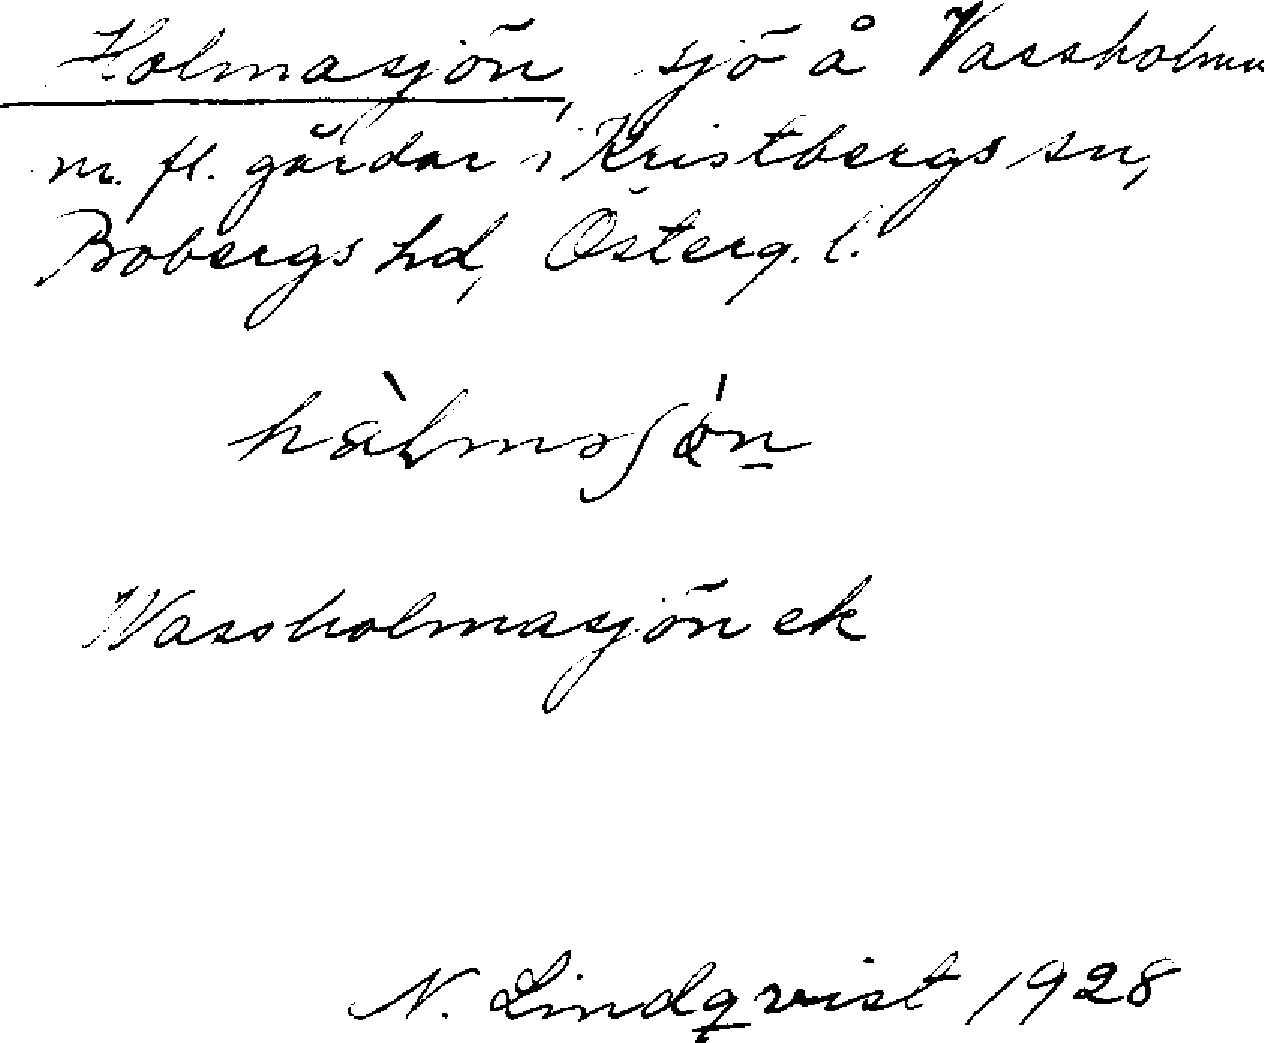 Holmasjön, sjö å Vassholma
m. fl. gårdar i Kristbergs sn,
Bobergs hd, Österg. l.
hàlmasjö́n
Wassholmasjön ek
N. Lindqvist 1928